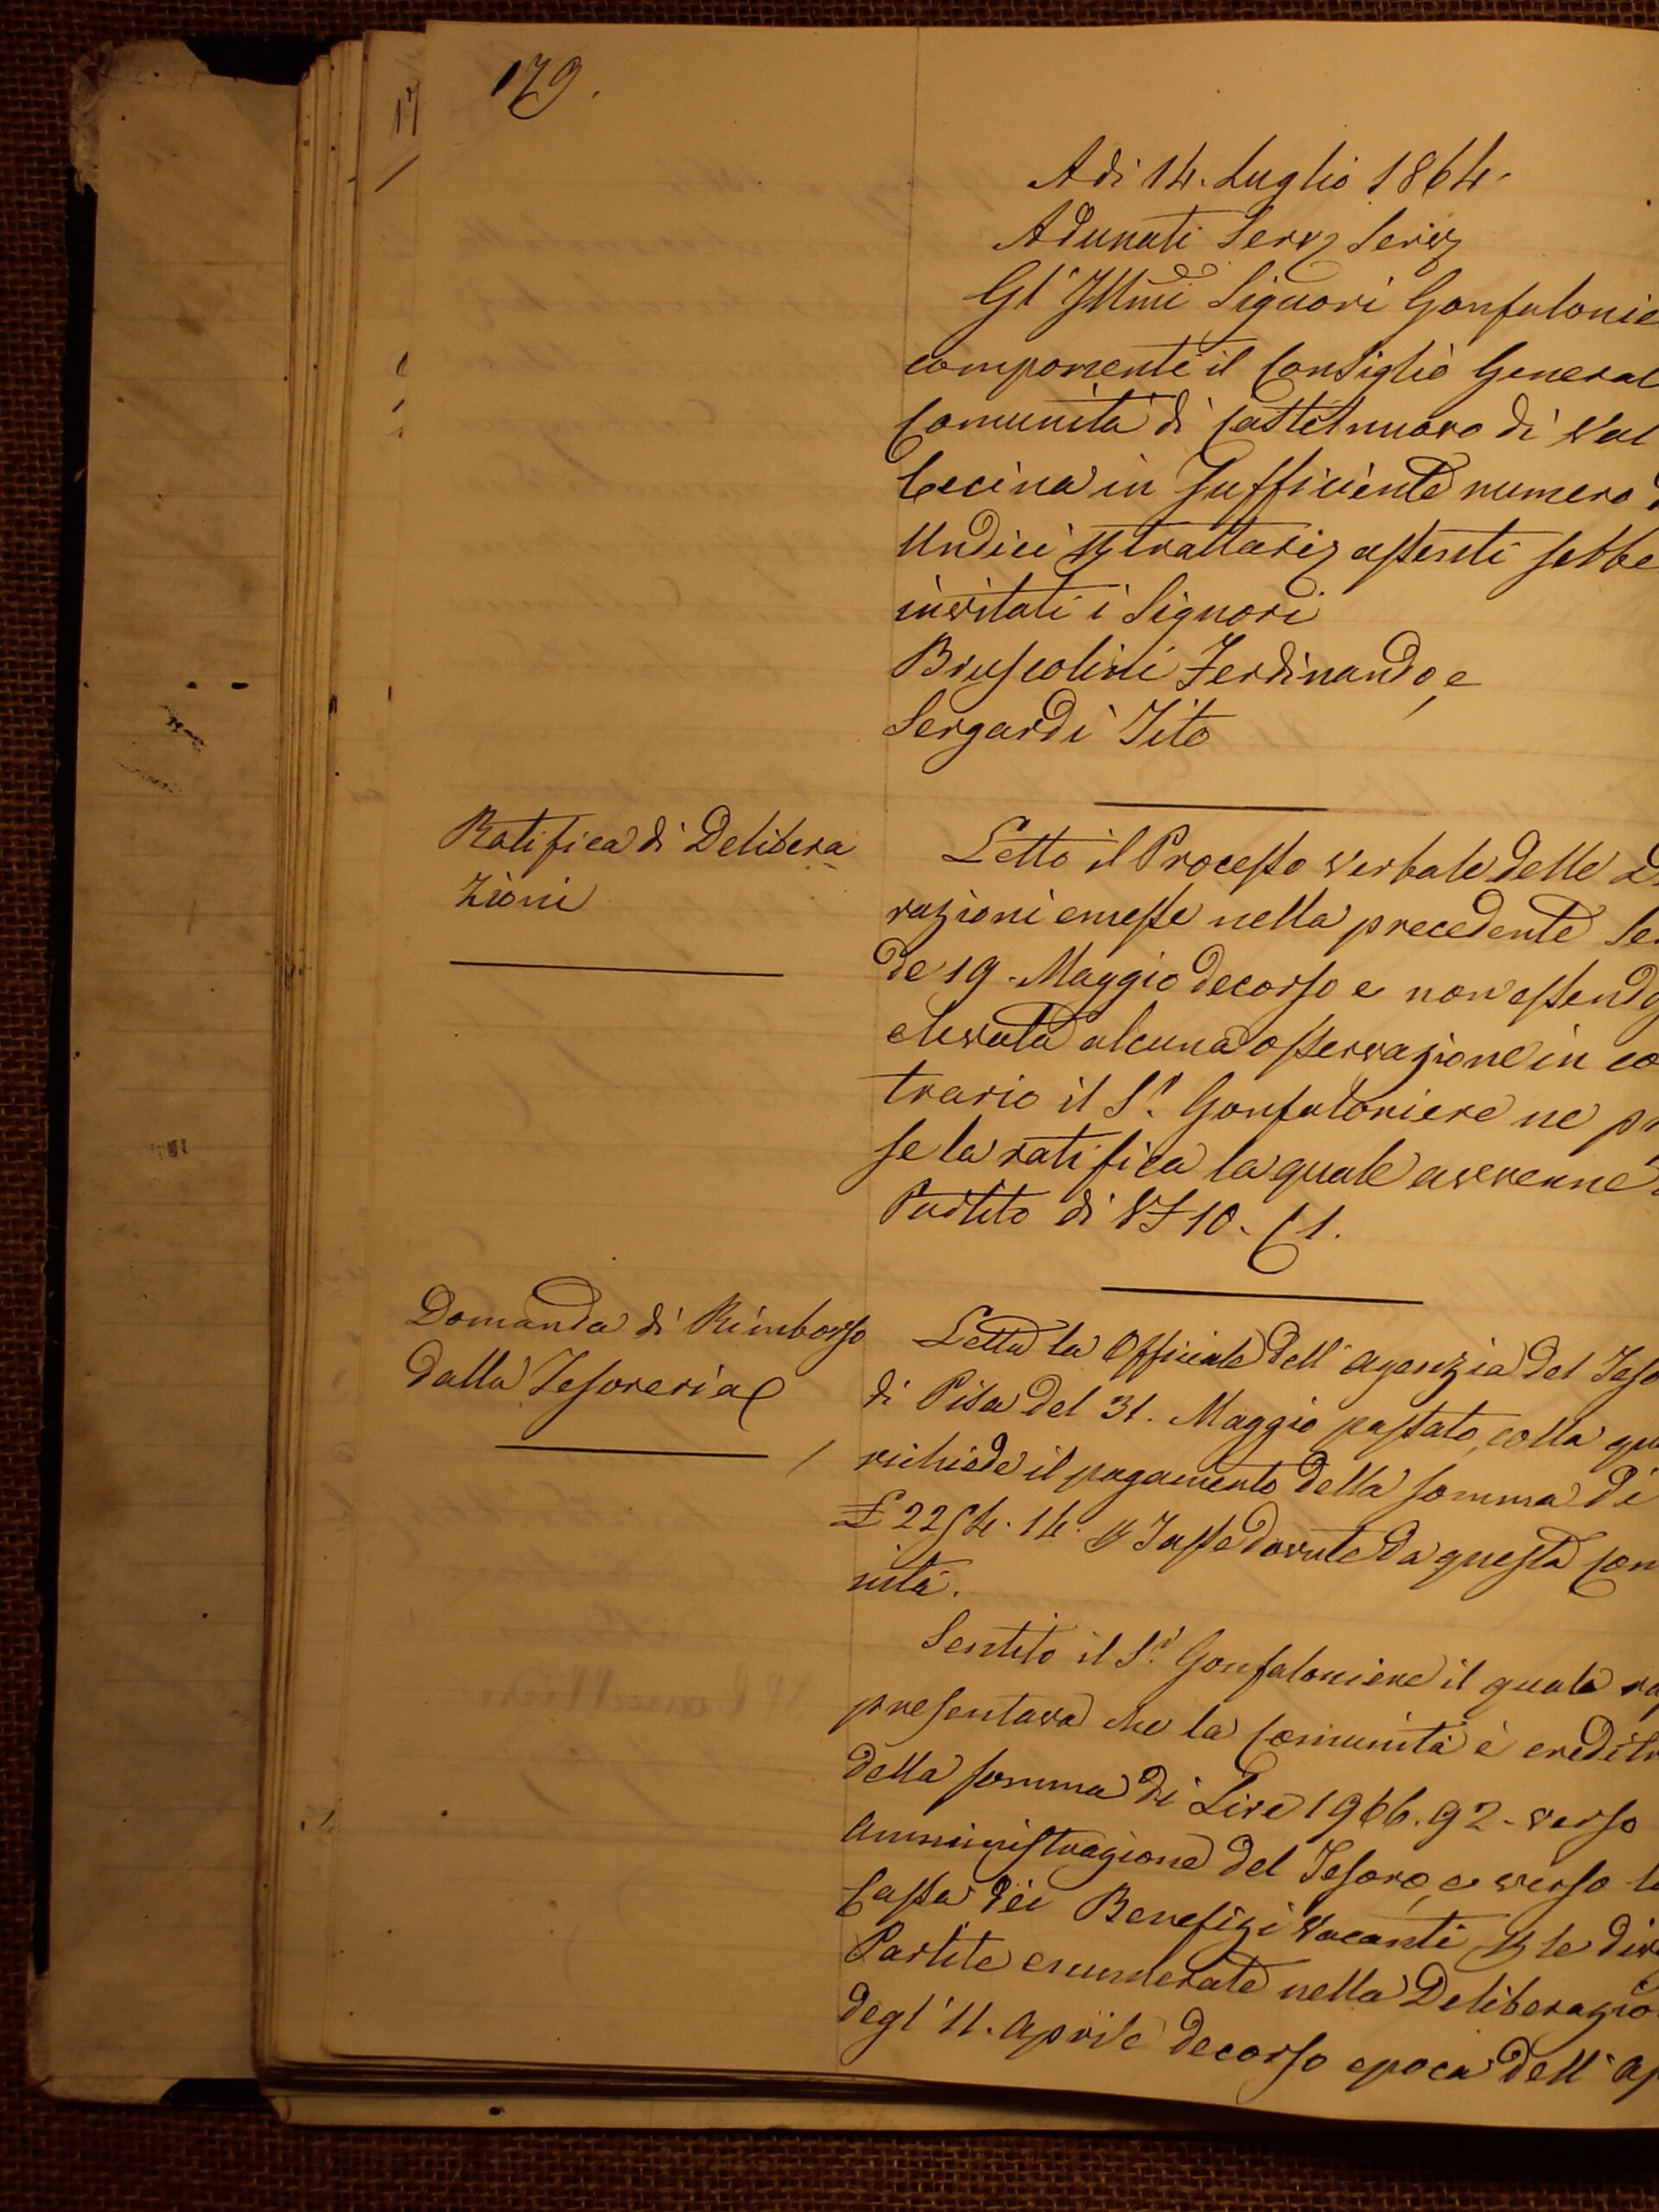 179.
Adi 14. Luglio 1864.
Adunati Serv Serv
Gl' Illmi Signori Gonfalonie
componenti il Consiglio General
Comunità di Castelnuovo di Val
Cecina in sufficiente numero d
Undici assenti sebbe
invitati i Signori
Bruscolini Ferdinando, e
Sergardi Tito
Ratifica di Delibera
zioni
Letto il Processo verbale delle D
razioni emesse nella precedente Se
de 19. Maggio decorso e non essendo
elevata alcuna osservazione in co
trario il Sr. Gonfaloniere ne pr
se la ratifica la quale avvenne
Partito di VF 10. C 1.
Domanda di Rimborso
dalla Tesoreria
Letta la Officiale dell' Agenzia del Teso
di Pisa del 31. Maggio passato, colla qu
richiede il pagamento della somma di
£ 2254. 14. Tasse dovute da questa Com
nità.
Sentito il Sr. Gonfaloniere il quale ra
presentava che la Comunità è credit
della somma di Lire 1966. 92 - verso
Amministrazione del Tesoro, e verso l
Cassa dei Benefizi Vacanti le div
Partite enumerate nella Deliberazio
degl' 11. Aprile decorso epoca dell' ap